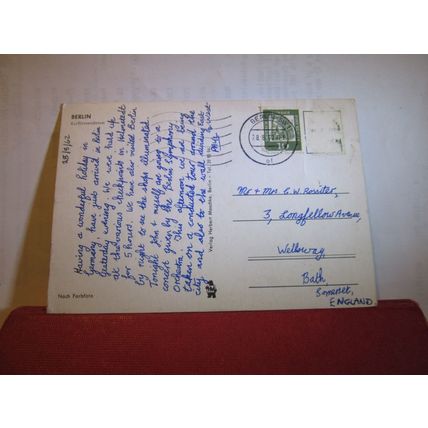 BERLIN
Kurfürstendamm
28/8/62
Having a wonderful holiday in
Germany have just arrived in Berlin
Yesterday evening. We were held up
at the various checkpoints in Helmstedt
for 5 hours. We have also visited Berlin
by night to see the shops illuminated.
Tonight John & myself are going to a
concert given by the Berlin Symphony
Orchestra. This afternoon we are being
taken on a conducted tour around the
city and also to the wall dividing East
& West
Verlag Herbert Meschke, Berlin
Nach Farbfoto
BERLIN
28.8.62
Mr & Mrs C.W. Rossiter,
3, Longfellow Avenue,
Wellsway,
Bath,
Somerset,
ENGLAND